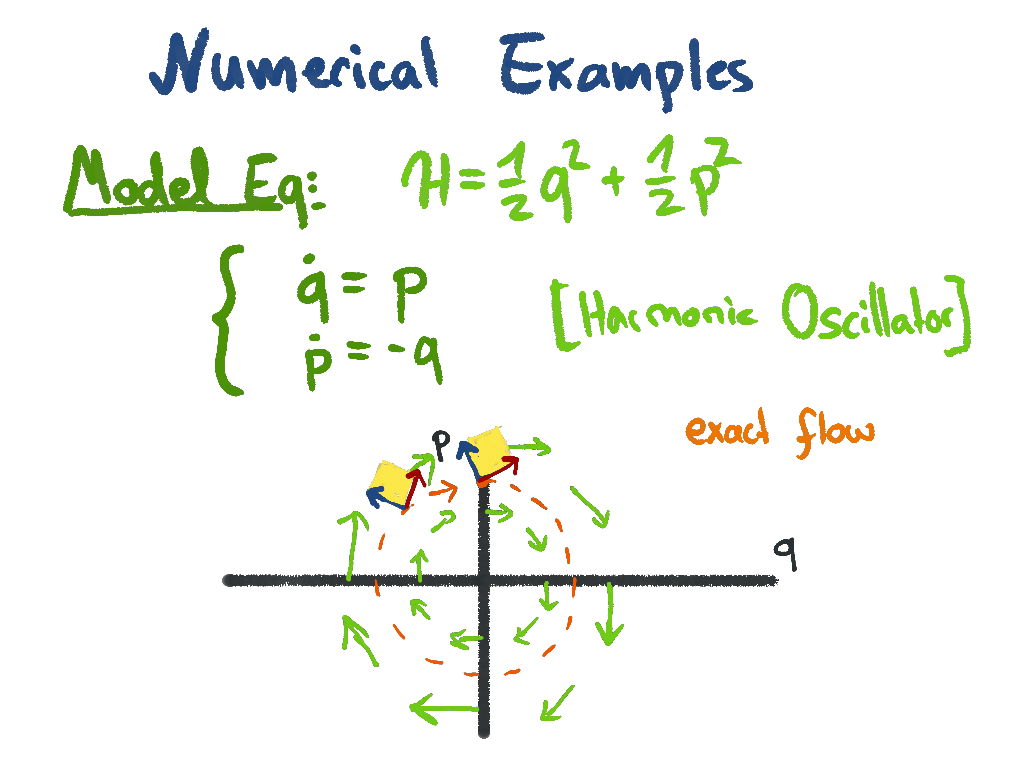 Numerical Examples
Model Eq: H = 1/2 q² + 1/2 p²
q̇ = p
[Harmonic Oscillator]
ṗ = -q
exact flow
p
q